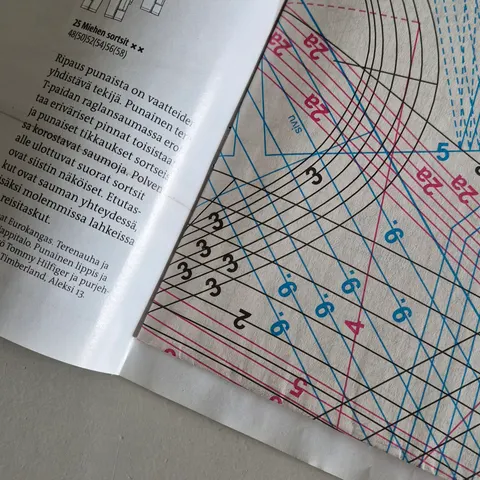 25 Miehen sortsit ✕✕
48(50)52(54)56(58)
Ripaus punaista on vaatteide
yhdistävä tekijä. Punainen ter
T-paidan raglansaumassa ero
taa eriväriset pinnat toisistaa
ja punaiset tikkaukset sortsei
sa korostavat saumoja. Polven
alle ulottuvat suorat sortsit
ovat siistin näköiset. Etutas-
kut ovat sauman yhteydessä,
isäksi molemmissa lahkeissa
reisitaskut.
at Eurokangas. Terenauha ja
appitalo. Punainen lippis ja
ö Tommy Hilfiger ja purjeh-
Timberland. Aleksi 13.
2a
2a
2a
2a
2a
sivu
5
3
3
3
3
3
3
2
9.
9.
9.
9.
9.
9.
4
5